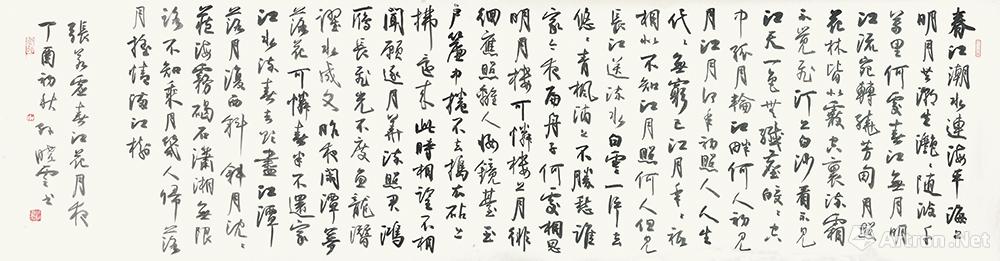 春江潮水連海平海上
明月共潮生灧灧随波千
萬里何處春江無月明
江流宛轉繞芳甸月照
花林皆似霰空裏流霜
不覺飛汀上白沙看不見
江天一色無纖塵皎皎空
中孤月輪江畔何人初見
月江月何年初照人人生
代代無窮已江月年年祗
相似不知江月照何人但見
長江送流水白雲一片去
悠悠青楓浦上不勝愁誰
家今夜扁舟子何處相思
明月樓可憐樓上月徘
徊應照離人妝鏡臺玉
户簾中捲不去搗衣砧上
拂還來此時相望不相
聞願逐月華流照君鴻
雁長飛光不度魚龍潛
躍水成文昨夜閑潭夢
落花可憐春半不還家
江水流春去欲盡江潭
落月復西斜斜月沉沉
藏海霧碣石瀟湘無限
路不知乘月幾人歸落
月搖情滿江樹
張若虚春江花月夜
丁酉初秋孫曉雲书
Artron.Net